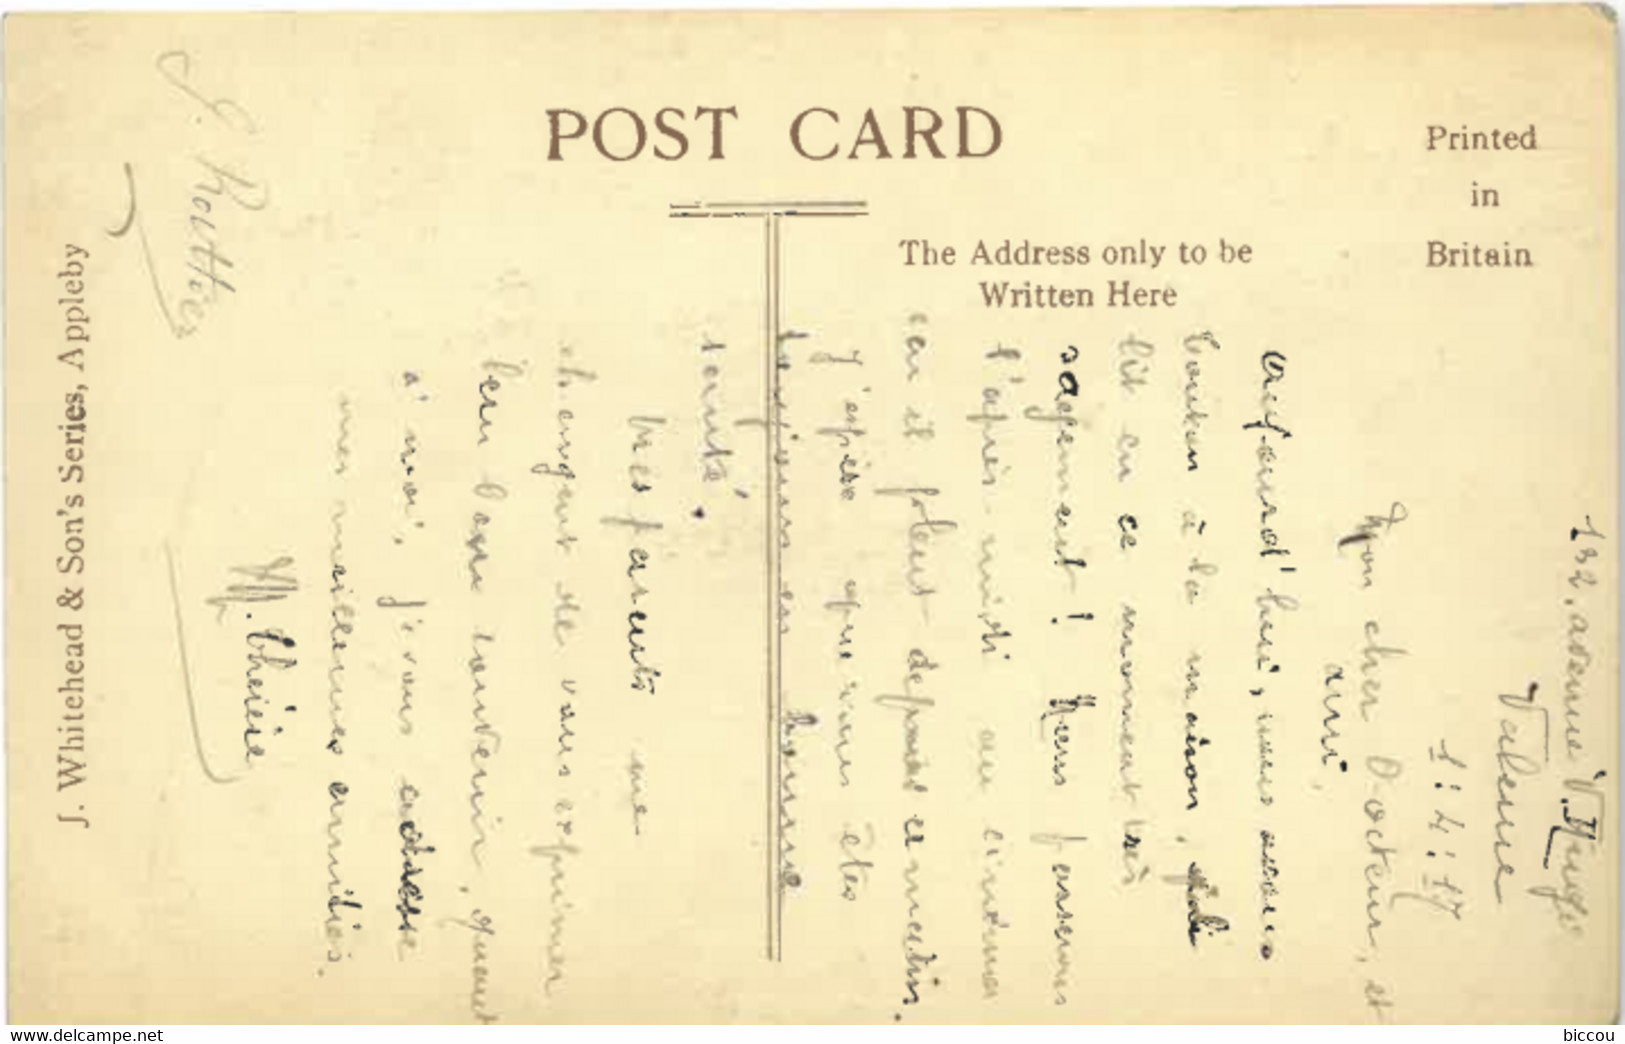 POST CARD
Printed
in
Britain
The Address only to be
Written Here
J. Whitehead & Son's Series, Appleby
132, avenue V. Hugo
Valence
1 : 4 : 17
Mon cher Docteur, et
ami,
Aujourd'hui, nous avons
Bouton à la maison,
lit en ce moment très
sagement ! Nous passerons
l'après-midi au cinéma
car il pleut depuis ce matin.
J'espère que vous êtes
toujours en bonne
santé.
Mes parents me
chargent de vous exprimer
leur bon souvenir, quant
à moi, je vous adresse
mes meilleures amitiés.
M. Thérèse
S. Routhier
biccou
www.delcampe.net